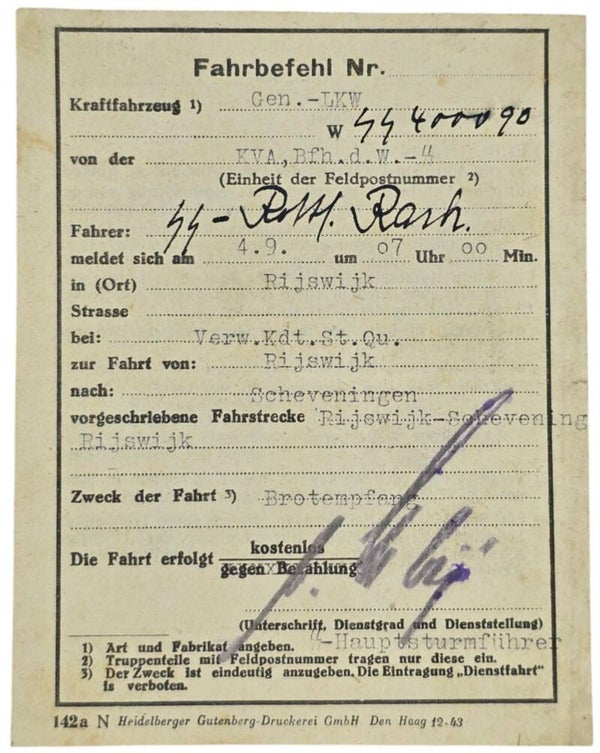 Fahrbefehl Nr.
Kraftfahrzeug 1) Gen.-LKW
W ϟϟ 400090
von der KVA,Bfh.d.W.-ϟϟ
(Einheit der Feldpostnummer 2)
Fahrer: ϟϟ-Rttf. Rash.
meldet sich am 4.9. um 07 Uhr 00 Min.
in (Ort) Rijswijk
Strasse
bei: Verw.Kdt.St.Qu.
zur Fahrt von: Rijswijk
nach: Scheveningen
vorgeschriebene Fahrstrecke Rijswijk-Schevening
Rijswijk
Zweck der Fahrt 3) Brotempfang
Die Fahrt erfolgt kostenlos
gegen Bezahlung
(Unterschrift, Dienstgrad und Dienststellung)
ϟϟ-Hauptsturmführer
1) Art und Fabrikat angeben.
2) Truppenteile mit Feldpostnummer tragen nur diese ein.
3) Der Zweck ist eindeutig anzugeben. Die Eintragung „Dienstfahrt"
is verboten.
142a N Heidelberger Gutenberg-Druckerei GmbH Den Haag 12-43